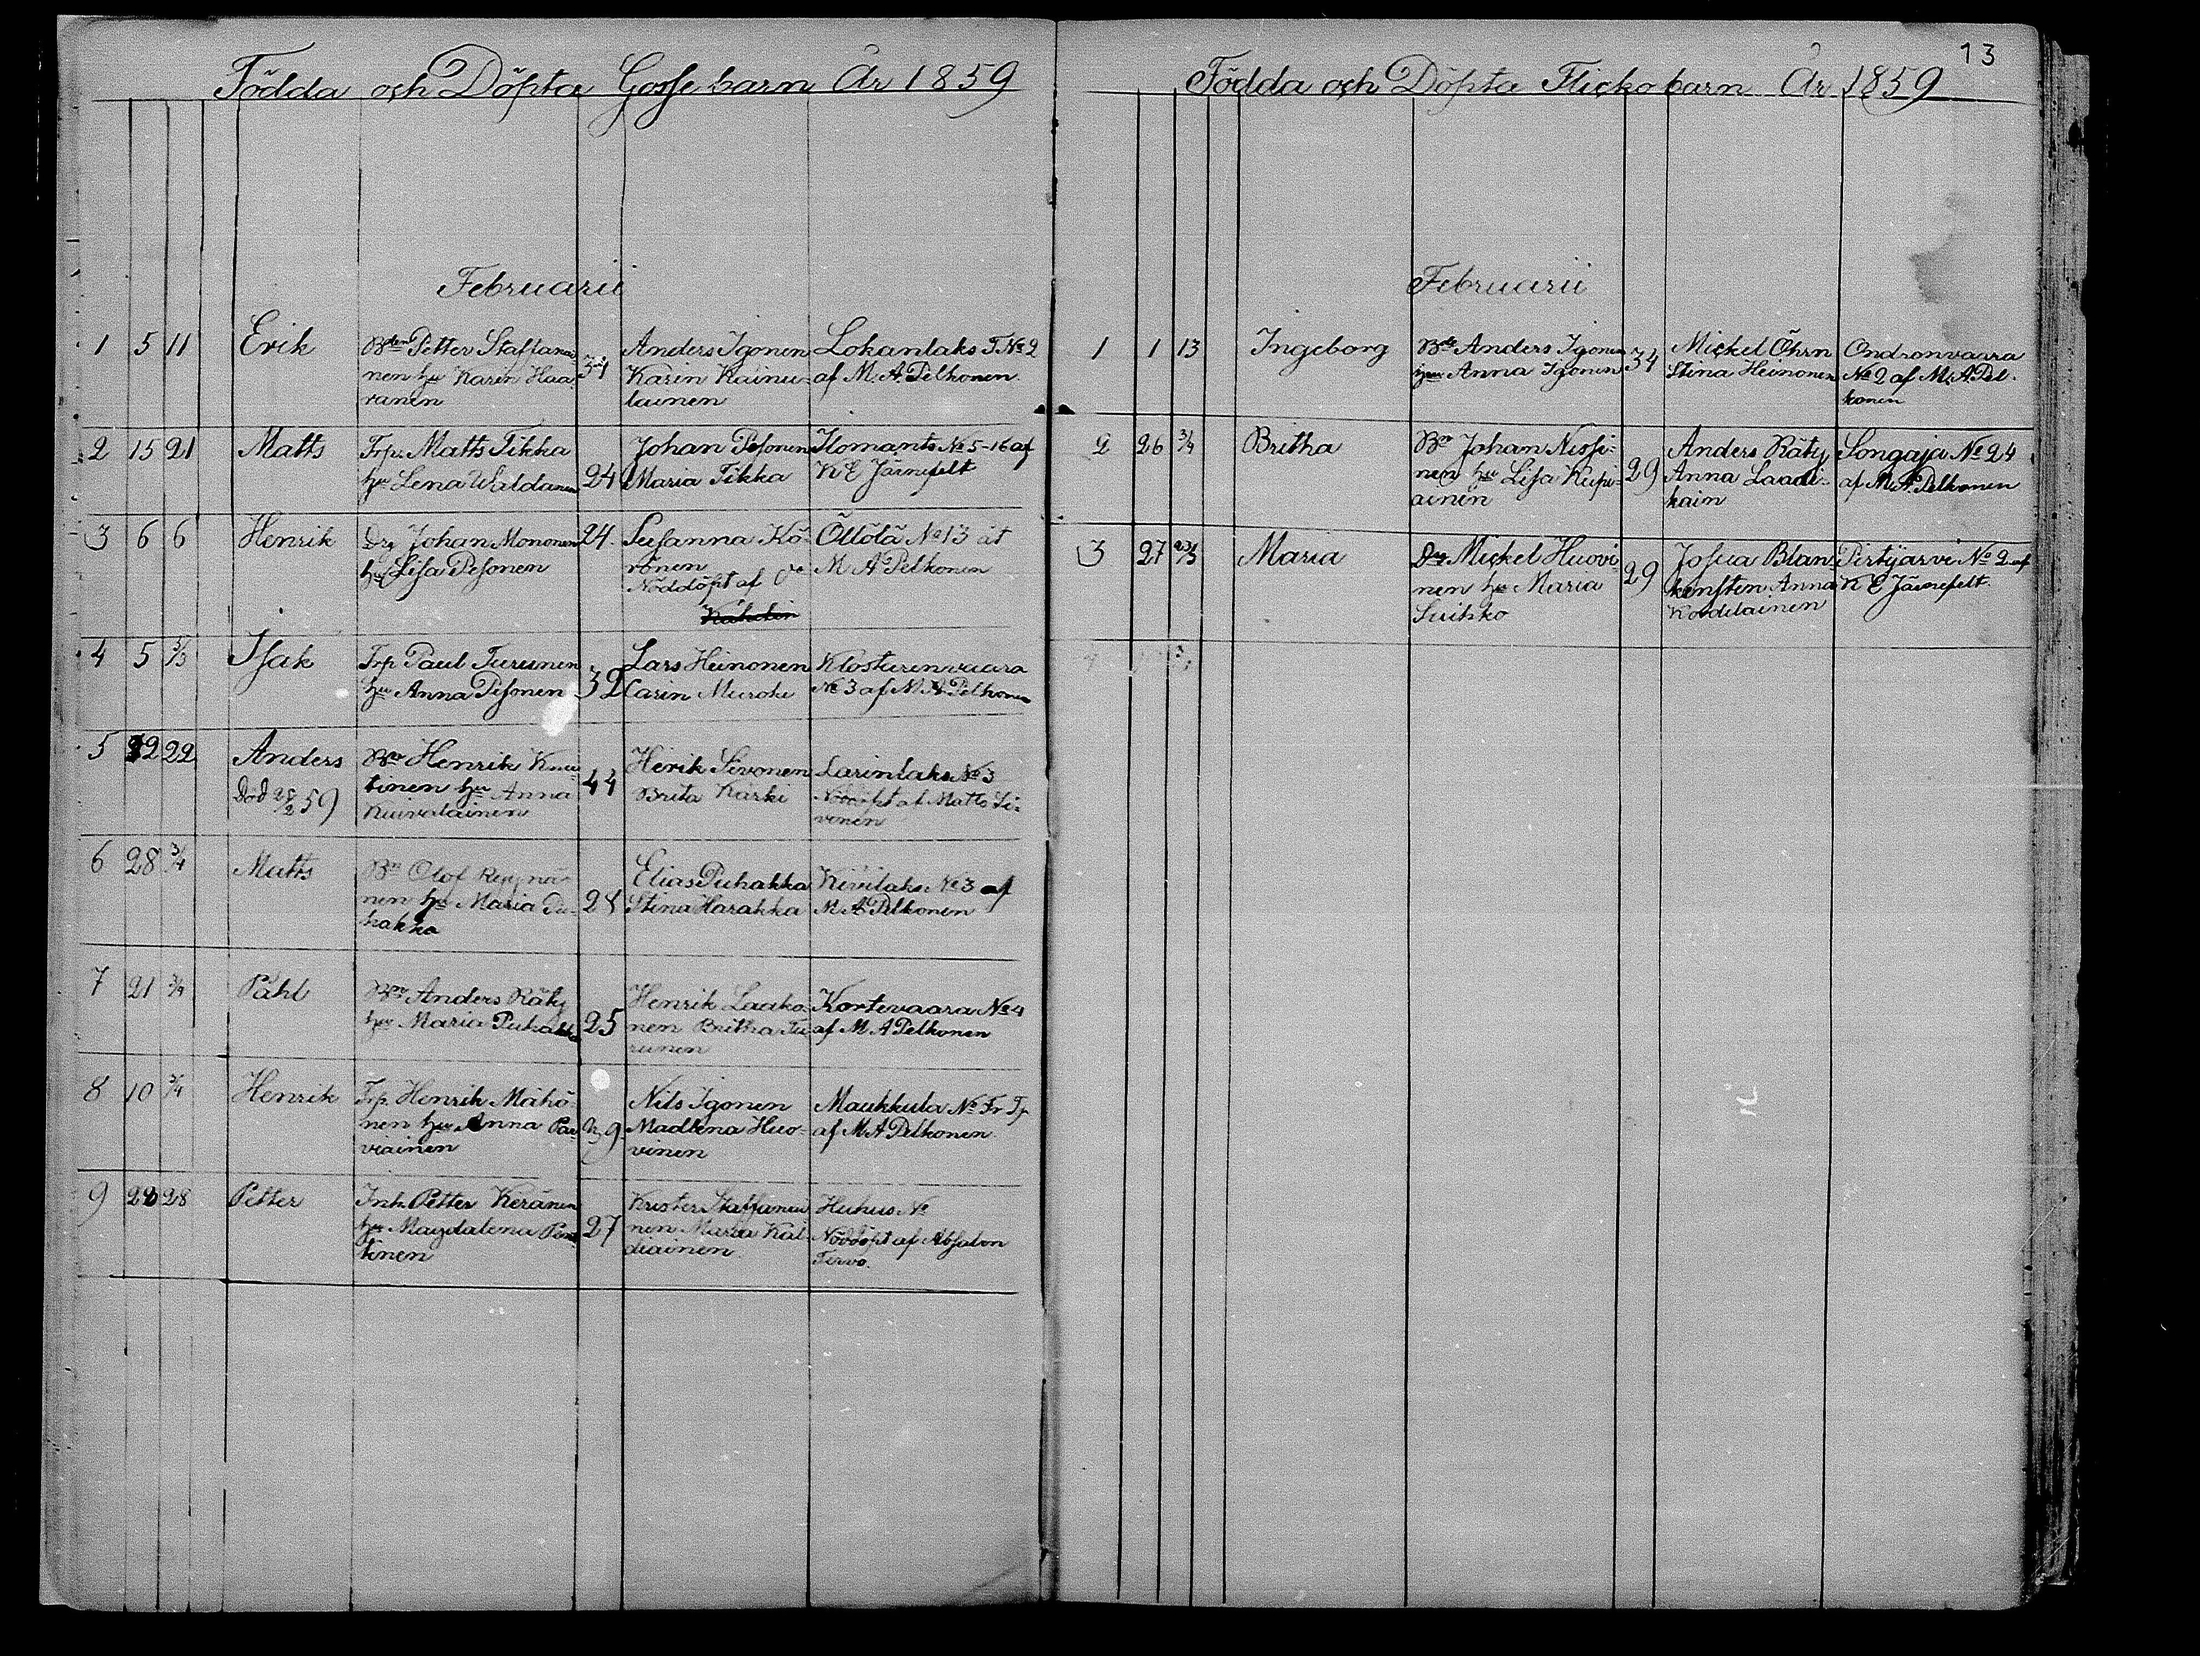 Födda och Döpta Gossebarn År 1859
Februarii
1 5 11 Erik Bden Petter Staffana 34 Anders Igonen Lokanlaks T. No 2
nen hu Karin Haa Karin Kainu- af M. A. Pelkonen
ranen lainen
2 15 21 Matts Trp. Matts Tikka Johan Pesonen Ilomants No 5-16 af
hu Lena Waldanen 24 Maria Tikka K E Järnefelt
3 6 6 Henrik Drg Johan Mononen 24. Susanna Kö- Öllölä No 13 at
hu Lisa Pesonen ronen M A Pelkonen
Nöddöpt af
4 5 5/3 Isak Trp Paul Turunen 32 Lars Heinonen Klosturenvaara
hu Anna Pesonen Carin Muroke No 3 af M A Pelkonen
5 22 22 Anders Bn Henrik 44 Henrik Sivonen Larinlaks No 3
Död 25/2 59 tinen hu Anna Brita Karki Nöddöpt af Matts Si-
Kuivalainen vonen
6 28 3/4 Matts Bn Olof 28 Elias Puhakka Kivilaks No 3 af
nen hu Maria Pu- Stina Harakka M A Pelkonen
hakka
7 21 3/4 Påhl Bn Anders Räty 25 Henrik Laako- Kortevaara No 4
hu Maria Puhakka nen Britha Tu af M A Pelkonen
runen
8 10 3/4 Henrik Trp. Henrik Mähö- 29 Nils Igonen Maukkula No Fr Tp
nen hu Anna Par Madlena Huo- af M A Pelkonen
viainen vinen
9 28 28 Petter Inh. Petter Keränen 27 Krister Staffanai Huhus No
hu Magdalena Pen nen Maria Kal- Nöddöpt af Absalon
tinen diainen Tervo.
13
Födda och Döpta Flickobarn År 1859
Februarii
1 1 13 Ingeborg Bde Anders Igonen 34 Mickel Öhrn Ondronvaara
hu Anna Igonen Stina Heinonen No 2 af M. A Pel-
konen
2 26 3/4 Britha Bn Johan Nissi- 29 Anders Räty Songaja No 24
nen hu Lisa Kupi- Anna Laadi- af M. A Pelkonen
ainen kain
3 27 Maria Drg Mickel Huovi- 29 Josua Blan Pirtijarvi No 2 af
nen hu Maria kensten Anna K E Järnefelt
Suihko Kordelainen